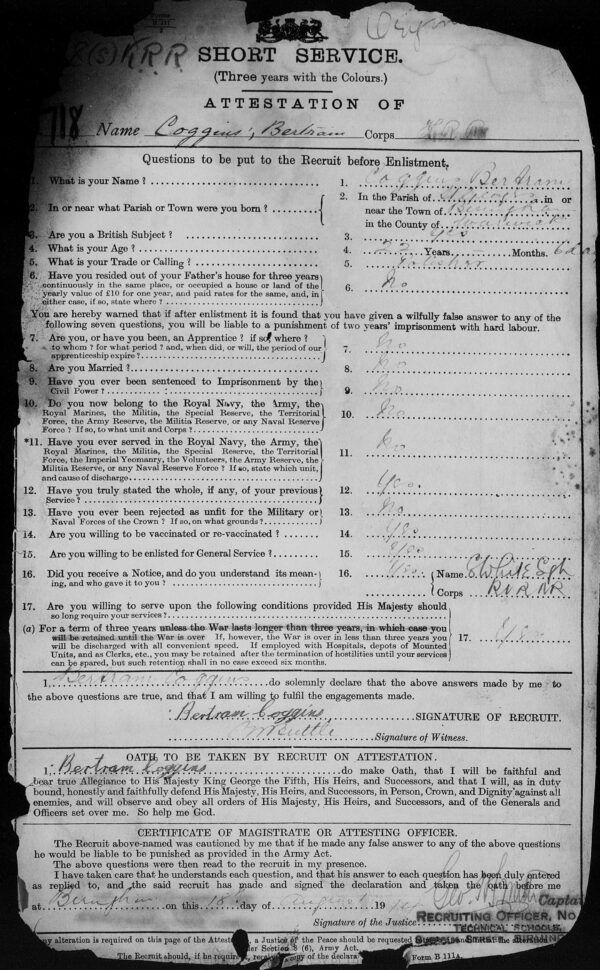 (S) KRR
SHORT SERVICE.
(Three years with the Colours.)
ATTESTATION OF
718 Name Coggins, Bertram Corps
Questions to be put to the Recruit before Enlistment.
1. What is your Name ? 1. Coggins Bertram
2. In or near what Parish or Town were you born ? 2. In the Parish of in or
near the Town of
in the County of
3. Are you a British Subject ? 3. Yes
4. What is your Age ? 4. Years Months.
5. What is your Trade or Calling ? 5.
6. Have you resided out of your Father's house for three years
continuously in the same place, or occupied a house or land of the
yearly value of £10 for one year, and paid rates for the same, and, in
either case, if so, state where ? 6. No
You are hereby warned that if after enlistment it is found that you have given a wilfully false answer to any of the
following seven questions, you will be liable to a punishment of two years' imprisonment with hard labour.
7. Are you, or have you been, an Apprentice ? if so, where ?
to whom ? for what period ? and, when did, or will, the period of our
apprenticeship expire ? 7. No
8. Are you Married ? 8. No
9. Have you ever been sentenced to Imprisonment by the
Civil Power ? 9. No
10. Do you now belong to the Royal Navy, the Army, the
Royal Marines, the Militia, the Special Reserve, the Territorial
Force, the Army Reserve, the Militia Reserve, or any Naval Reserve
Force ? If so, to what unit and Corps ? 10. No
*11. Have you ever served in the Royal Navy, the Army, the
Royal Marines, the Militia, the Special Reserve, the Territorial
Force, the Imperial Yeomanry, the Volunteers, the Army Reserve, the
Militia Reserve, or any Naval Reserve Force ? If so, state which unit,
and cause of discharge 11. No
12. Have you truly stated the whole, if any, of your previous
Service ? 12. Yes
13. Have you ever been rejected as unfit for the Military or
Naval Forces of the Crown ? If so, on what grounds ? 13. No
14. Are you willing to be vaccinated or re-vaccinated ? 14. Yes
15. Are you willing to be enlisted for General Service ? 15. Yes
16. Did you receive a Notice, and do you understand its mean-
ing, and who gave it to you ? 16. Yes Name White Sgt
Corps
17. Are you willing to serve upon the following conditions provided His Majesty should
so long require your services ?
(a) For a term of three years unless the War lasts longer than three years, in which case you
will be retained until the War is over If, however, the War is over in less than three years you
will be discharged with all convenient speed. If employed with Hospitals, depots of Mounted
Units, and as Clerks, etc., you may be retained after the termination of hostilities until your services
can be spared, but such retention shall in no case exceed six months. 17. Yes
I, Bertram Coggins do solemnly declare that the above answers made by me to
the above questions are true, and that I am willing to fulfil the engagements made.
Bertram Coggins SIGNATURE OF RECRUIT.
Signature of Witness.
OATH TO BE TAKEN BY RECRUIT ON ATTESTATION.
I, Bertram Coggins do make Oath, that I will be faithful and
bear true Allegiance to His Majesty King George the Fifth, His Heirs, and Successors, and that I will, as in duty
bound, honestly and faithfully defend His Majesty, His Heirs, and Successors, in Person, Crown, and Dignity against all
enemies, and will observe and obey all orders of His Majesty, His Heirs and Successors, and of the Generals and
Officers set over me. So help me God.
CERTIFICATE OF MAGISTRATE OR ATTESTING OFFICER.
The Recruit above-named was cautioned by me that if he made any false answer to any of the above questions
he would be liable to be punished as provided in the Army Act.
The above questions were then read to the recruit in my presence.
I have taken care that he understands each question, and that his answer to each question has been duly entered
as replied to, and the said recruit has made and signed the declaration and taken the oath before me
at on this 18 day of August 19
Captain
Signature of the Justice
RECRUITING OFFICER, No
TECHNICAL SCHOOLS,
SUFFOLK STREET
any alteration is required on this page of the Attest a Justice of the Peace should be requested
under Section 8 (6), Army Act.
The Recruit should, if he require, receive a copy of the declara Form B 111A.